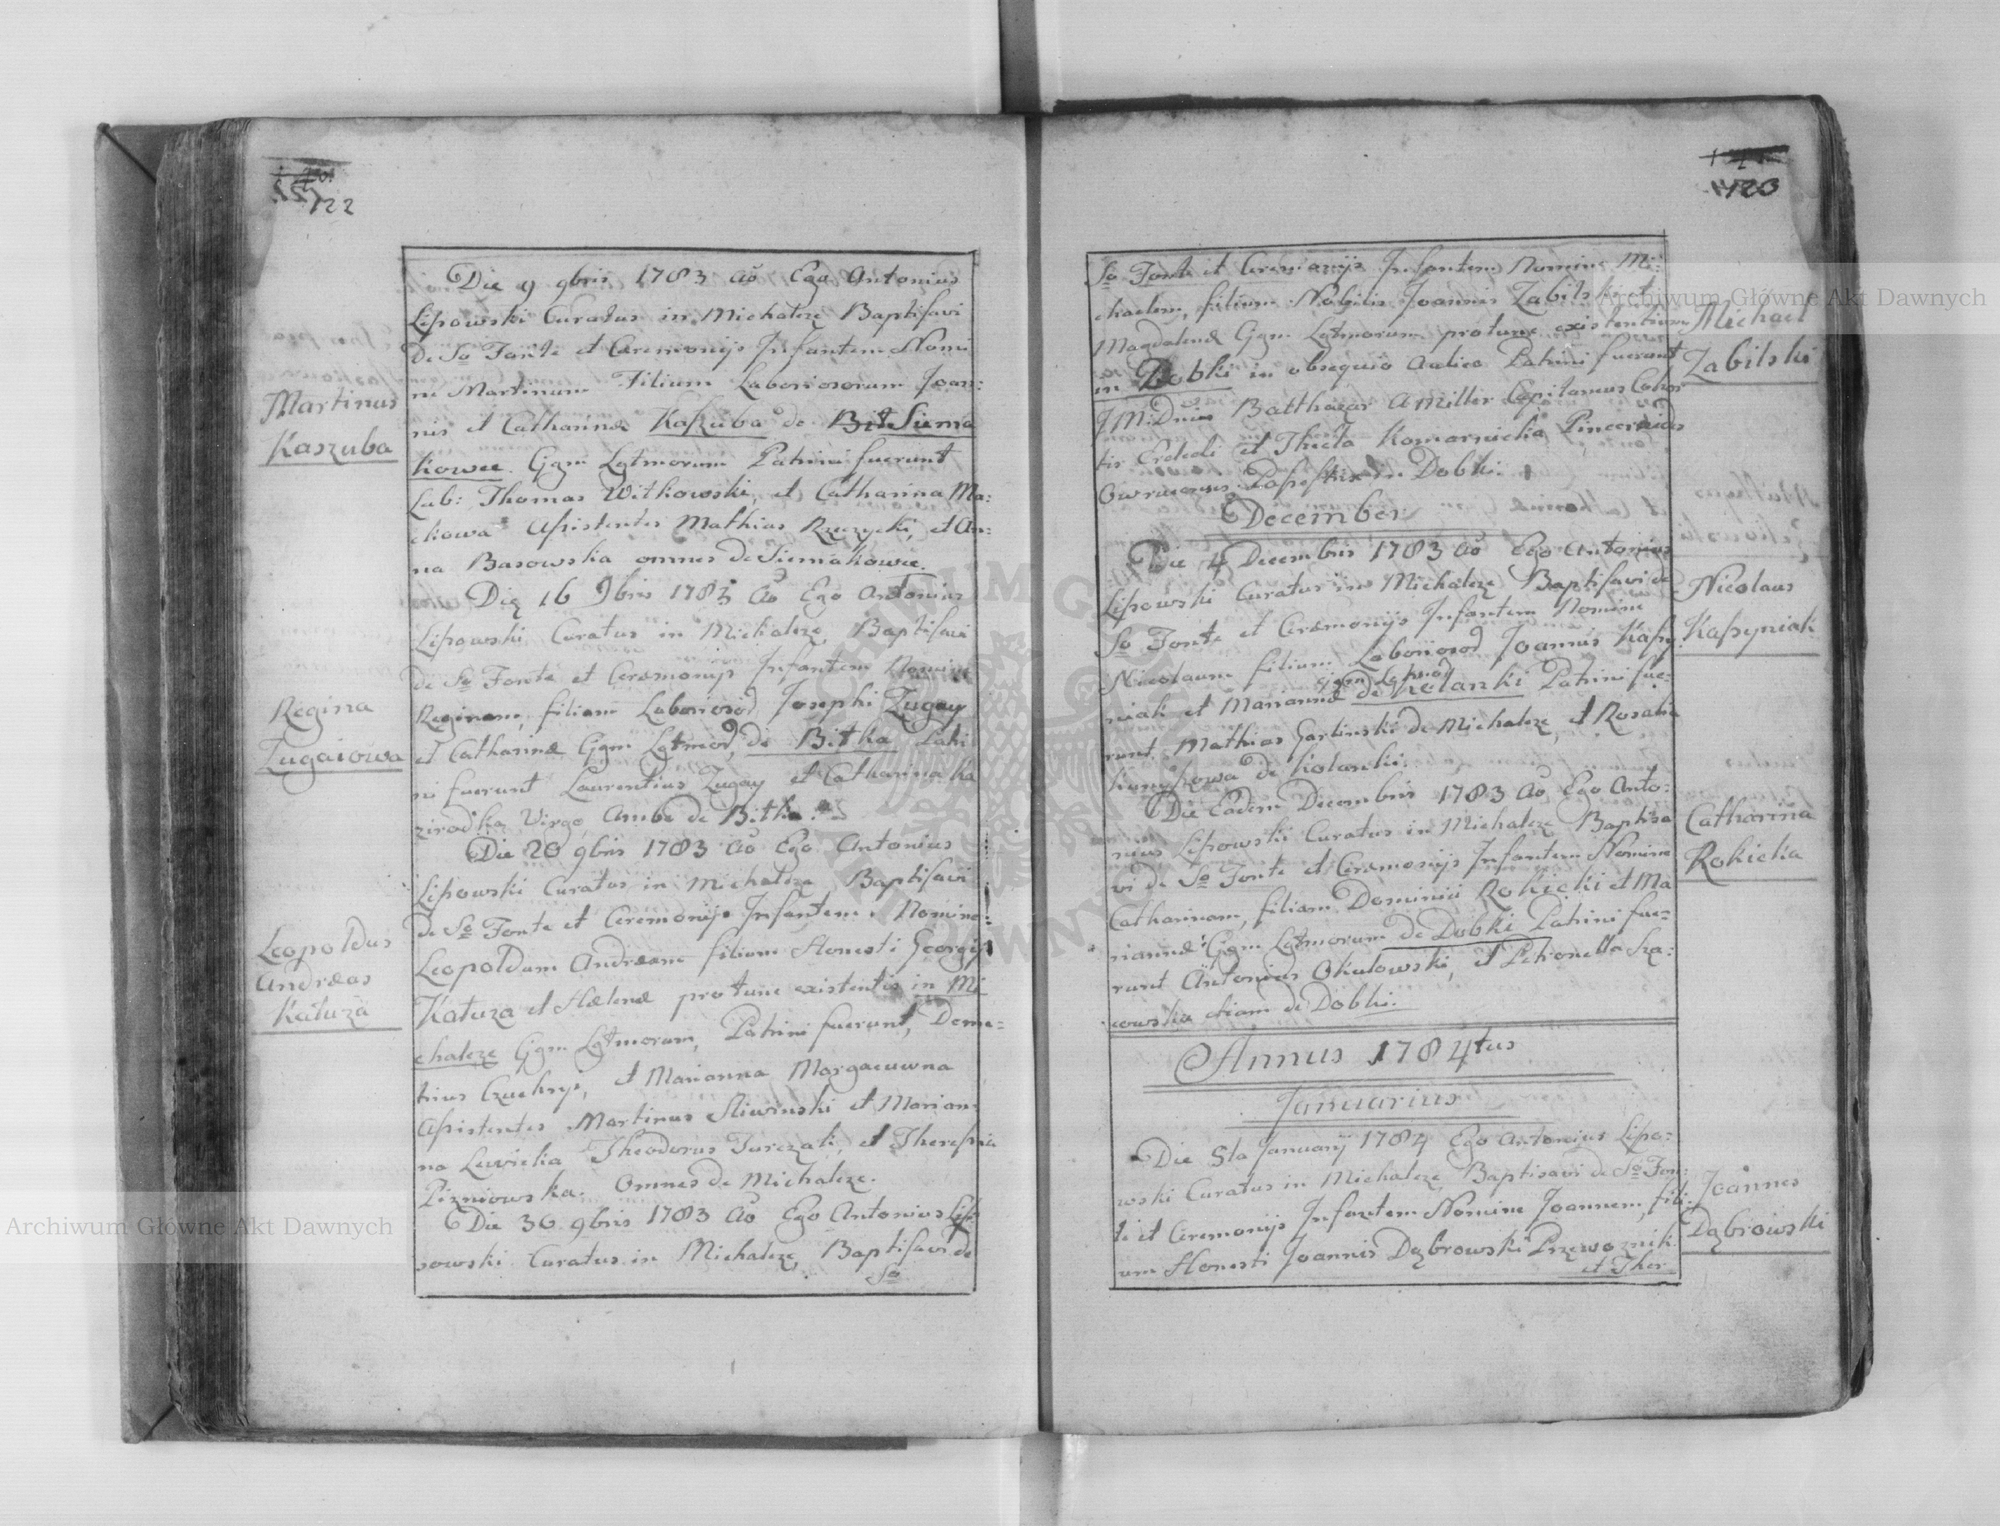 122
Die 9 9bris 1783 Aō Ego Antonius
Lipowski Curatus in Michalcze Baptisavi
de So Fonte et Ceremonijs Infantem Nomi
ne Martinum Filium Laboriosorum Joan:
nis et Catharinæ Kaszuba de Siema
kowce Ggm Lgtmorum Patrini fuerunt
Lab: Thomas Witkowski, et Catharina Ma:
ckowa Assistentes Mathias Rzezycki, et An:
na Basowska omnes de Siemakowce.
Martinus
Kaszuba
Die 16 9bris 1783 Aō Ego Antonius
Lipowski Curatus in Michalcze, Baptisavi
de So Fonte et Ceremonijs Infantem Nomine
Reginam, filiam Laboriosor Josephi Zugay
et Catharinæ Ggm Lgtmor, de Bitka Patri
ni fuerunt Laurentius Zugay et Catharina Ka
zirodka Virgo, Ambo de Bitka.
Regina
Zugaiowa
Die 20 9bris 1783 Aō Ego Antonius
Lipowski Curatus in Michalcze, Baptisavi
de So Fonte et Ceremonijs Infantem Nomine
Leopoldum Andream filium Honesti Georgij
Katuza et Helenæ protunc existentis in Mi
chalcze Ggm Lgtmorum, Patrini fuerunt, Deme=
trius et Marianna Morgacuwna
Assistentes Martinus Sliwinski et Marian
na Luvicka Theodorus Turczak, et Theressia
Pizniowska. Omnes de Michalcze.
Leopoldus
Andræas
Katuza
Die 30 9bris 1783 Aō Ego Antonius Lip
sowski Curatus in Michalcze, Baptisavi de
So
123
So Fonte et Ceremonijs Infantem Nomine Mi:
chaelem, filium Nobilis Joannis Zabilski et
Magdalenæ Ggm Lgtmorum protunc existentium
in Dobki in obsequio Aulico Patrini fuerunt
MDnus Balthazar a Miller Capitaneus Cohor
tis Erdedi et Thecla Komarnicka Pincernides
Owrucensis in Dobki.
Michael
Zabilski
December
Die 4 Decembris 1783 Aō Ego Antonius
Lipowski Curatus in Michalcze Baptisavi de
So Fonte et Ceremonijs Infantem Nomine
Nicolaum filium Laboriosor Joannis Kaspy
niak et Mariannæ ggm Lgtmor de Kolanki Patrini fue:
runt Mathias Garlinski de Michalcze, et Rosalia
de Kolanki.
Nicolaus
Kaspyniak
Die Eadem Decembris 1783 Aō Ego Anto:
nius Lipowski Curatus in Michalcze Baptisa
vi de So Fonte et Ceremonijs Infantem Nomine
Catharinam, filiam Dominici Rokicki et Ma
riannæ Ggm Lgtmorum de Dobki Patrini fue=
runt Antonius Okulowski, et Petronella Sza:
cowska etiam de Dobki.
Catharina
Rokicka
Annus 1784tus
Januarius
Die 5ta Januarij 1784 Ego Antonius Lipo:
wski Curatus in Michalcze Baptisavi de So Fon:
te et Ceremonijs Infantem Nomine Joannem, fili:
um Honesti Joannis Dąbrowski Przewoznik
et Ther
Joannes
Dąbrowski
Archiwum Główne Akt Dawnych
Archiwum Główne Akt Dawnych